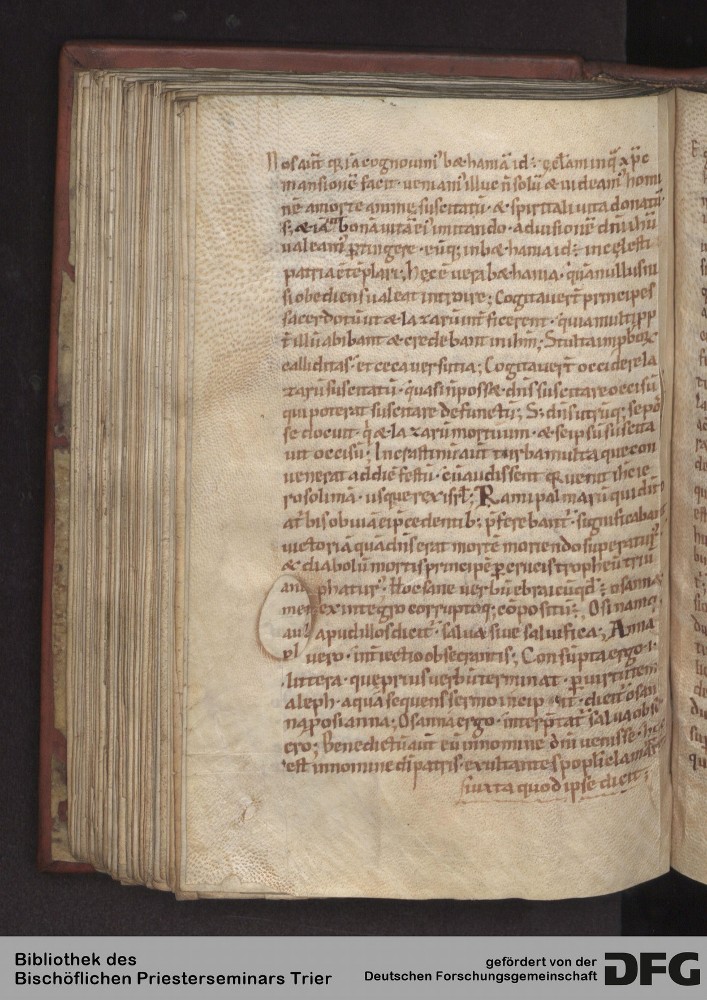 Nos aut̄ q̄ iā cognovim᷒ bethaniā id ÷ ecclam in q̄ xp̄c
mansionē facit · veniam᷒ illuc n̄ solū & videam᷒ homi
nē a morte anime suscitatū · & spiritali vita donatū
s; & iā bonā vitā ei᷒ imitando · ad visionē dn̄i ihū
valeam᷒ ꝑtingere · eūq; in bethania id ÷ in celesti
patria ctēplari; hec ē vera bethania · quā nullus ni
si obediens valeat introire; Cogitaver̄t principes
sacerdotū ut & lazarū int̄ficerent · quia multi ꝓp
t̄ illū abibant & credebant in ihm̄; Stulta improboꝝ
calliditas · et ceca versutia; Cogitaver̄t occidere la
zarū suscitatū · quasi n̄ posset dn̄s suscitare occisū
qui poterat suscitare defunctū; S; dn̄s utrūq; se po
se docuit · q̄ & lazarū mortuum · & se ipsū suscita
vit occisū; In crastinū aut̄ turba multa que con
venerat ad diē festū · cū audissent q̄ venit ihc ie
rosolimā · usque rex isrl̄; Rami palmarū qui dict̄
at᷒ bis obviā ei p̄cedentib; p̄ferebant᷒ · significabant
victoriā quā dn̄s erat mortē moriendo superatur᷒
& diabolū mortis principē ꝑ crucis tropheū triu
phatur᷒ · Hoc sane verbū ebraicū qd̄ ÷ osanna
ex integro corruptoq; cōpositū ÷; Osi namq;
apud illos dicit᷒ · salva sive salvifica; Anna
vero · int̄iectio obsecrantis; Consūpta ergo · i ·
littera · que prius verbū terminat · ꝑ virtutem
aleph · a qua sequens sermo incipit · dicit᷒ osan
na pos anna; Osanna ergo · interp̄tat᷒ salva obse
cro; Benedictū aut̄ eū in nomine dn̄i venisse · hoc
est in nomine dī patris · exultantes popli clamant
iuxta quod ipse dicit;
Bibliothek des
Bischöflichen Priesterseminars Trier
gefördert von der
Deutschen Forschungsgemeinschaft
DFG